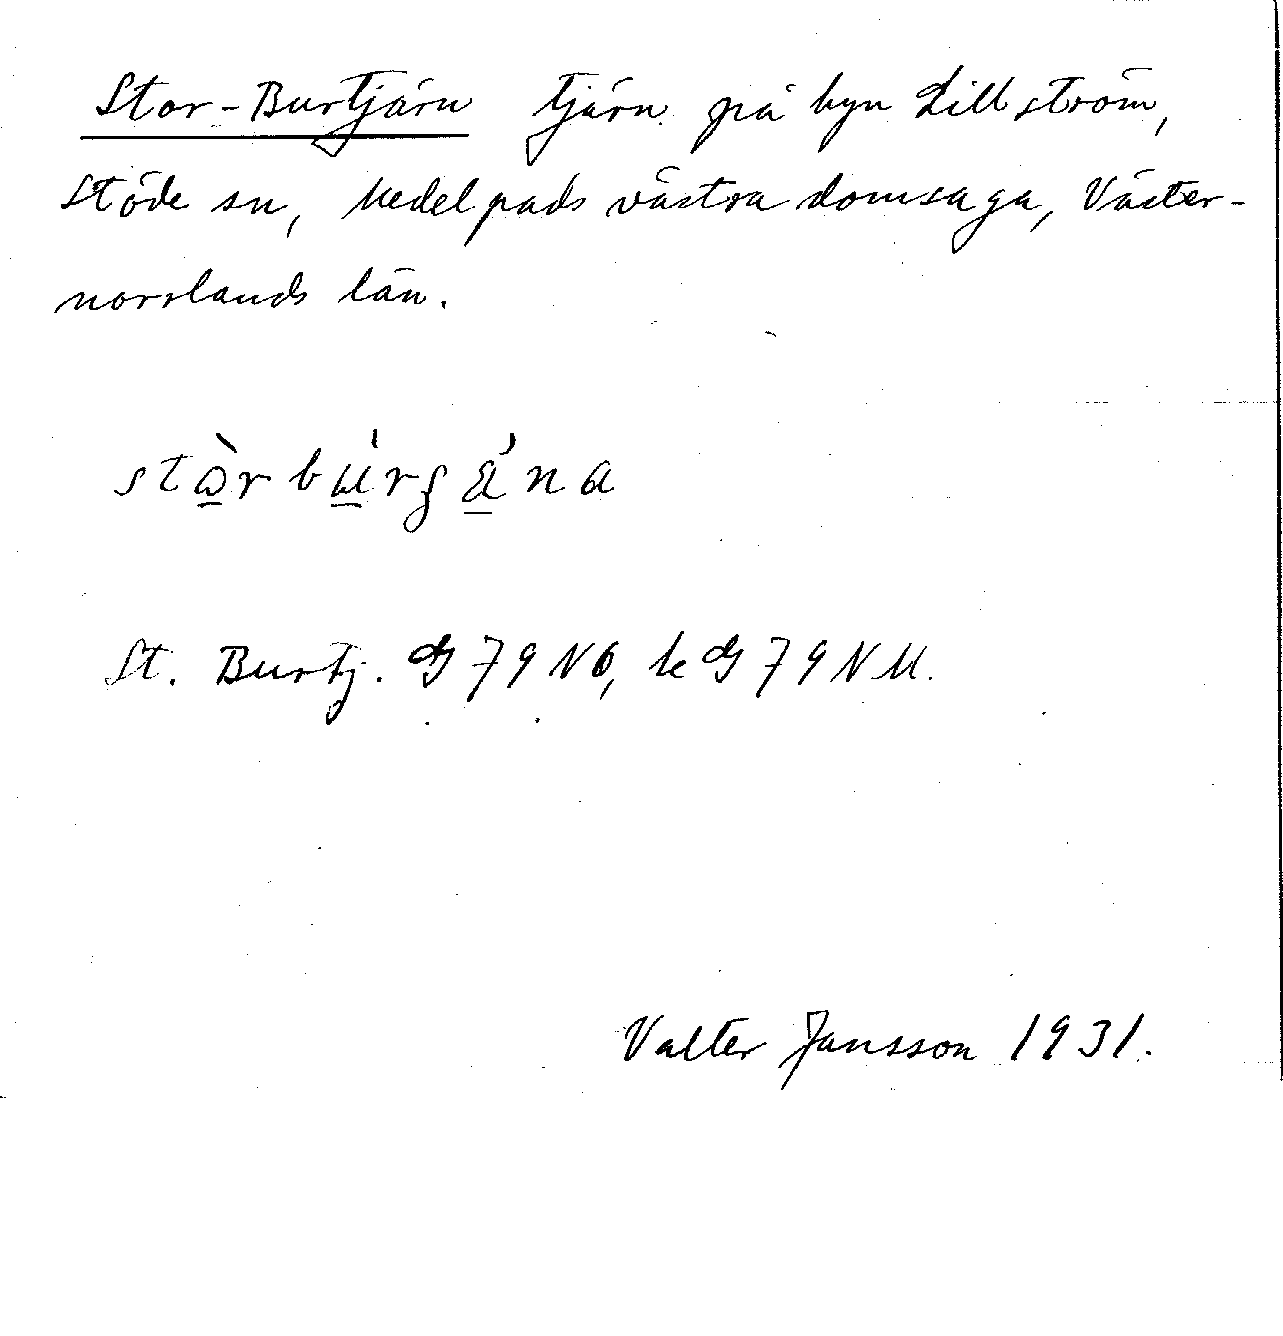 Stor-Burtjärn tjärn på byn Lillström,
Stöde sn, Medelpads västra domsaga, Väster-
norrlands län.
St. Burtj. G 79 NÖ, le G 79 NM.
Valter Jansson 1931.